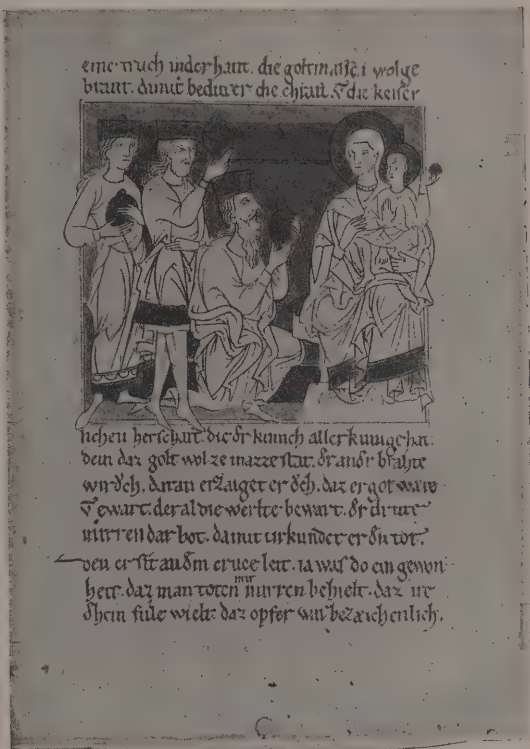 eine truch in der hant. die goltin
brant. dmit bediut er die chraft. die keiser
lichen herschaft. die dr kunich aller kunige hat
dem daz golt wol ze mazze stat. dr andr brahte
wirδch. daran erzaiget er δch. daz er got ware
ewart. der al die werlte bewart. dr dritte
mirren dar bot. damit urkundet er dn tot.
den er sit an dm cruce leit. ia was do ein gewon
heit. daz man toten mit mirren behielt. daz ir
dhein fule wielt. daz opfer was bezaichenlich.